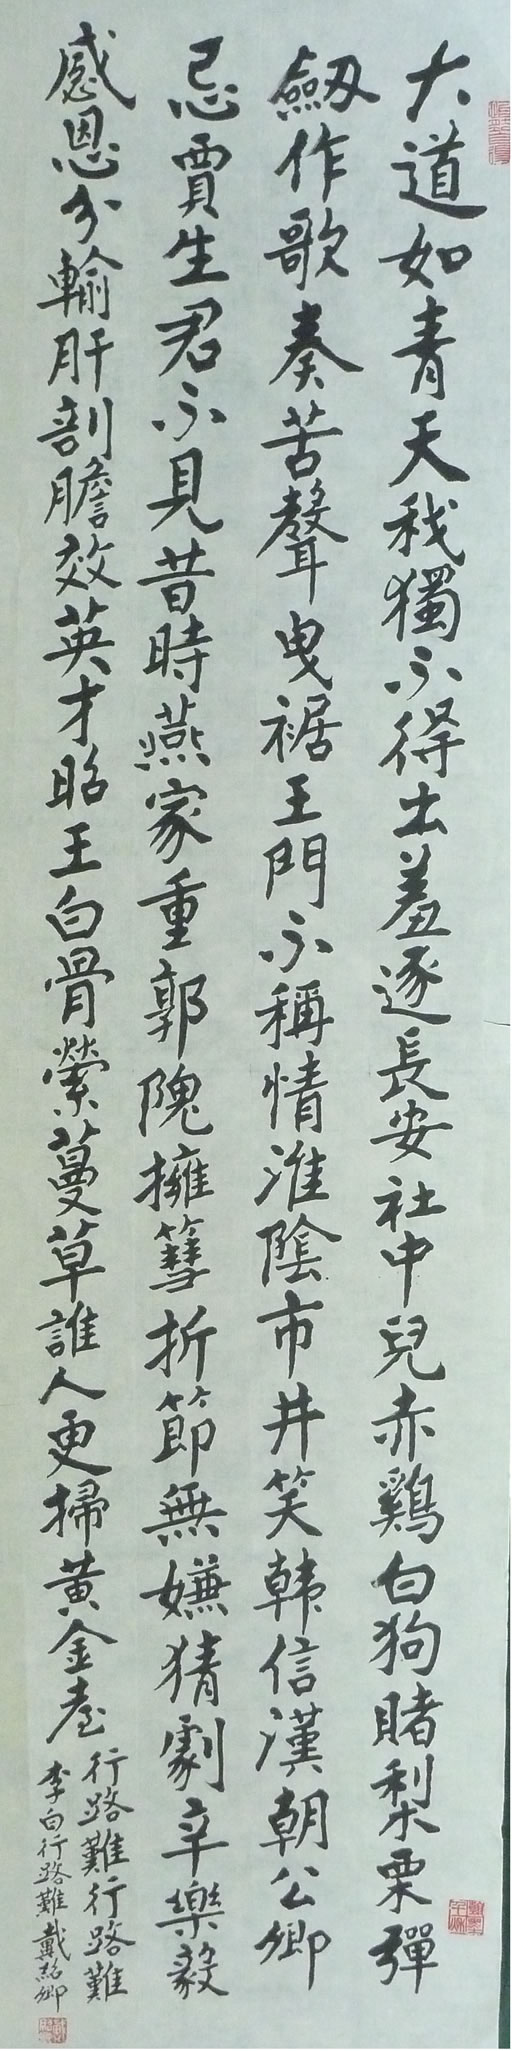 大道如青天我獨不得出羞逐長安社中兒赤鷄白狗賭梨栗彈
劒作歌奏苦聲曳裾王門不稱情淮陰市井笑韓信漢朝公卿
忌賈生君不見昔時燕家重郭隗擁篲折節無嫌猜劇辛樂毅
感恩分輸肝剖膽效英才昭王白骨縈蔓草誰人更掃黃金臺
行路難行路難
李白行路難戴紹卿